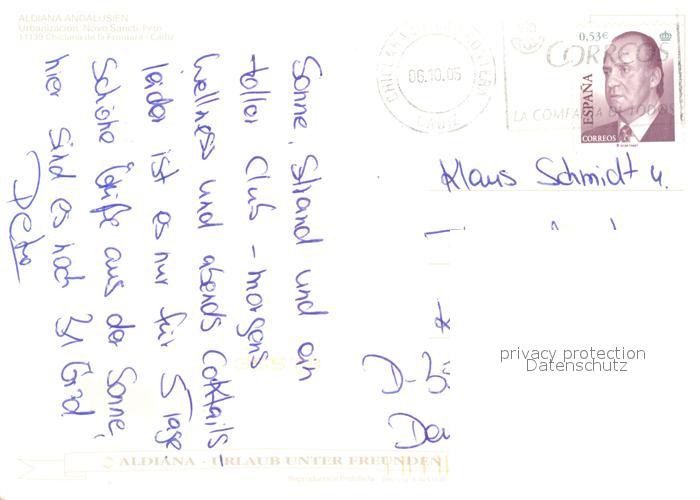 ALDIANA ANDALUSIEN
Urbanización Novo Sancti Petri
11139 Chiclana de la Frontera - Cádiz
Sonne, Strand und ein
toller Club - morgens
Wellness und abends Cocktails -
leider ist es nur für 5 Tage.
Schöne Grüße aus der Sonne,
hier sind es noch 31 Grad
Petra
06.10.05
CADIZ
CORREOS
LA COMPAÑIA DE TODOS
0,53€
ESPAÑA
CORREOS
Klaus Schmidt u.
privacy protection
Datenschutz
ALDIANA - URLAUB UNTER FREUNDEN